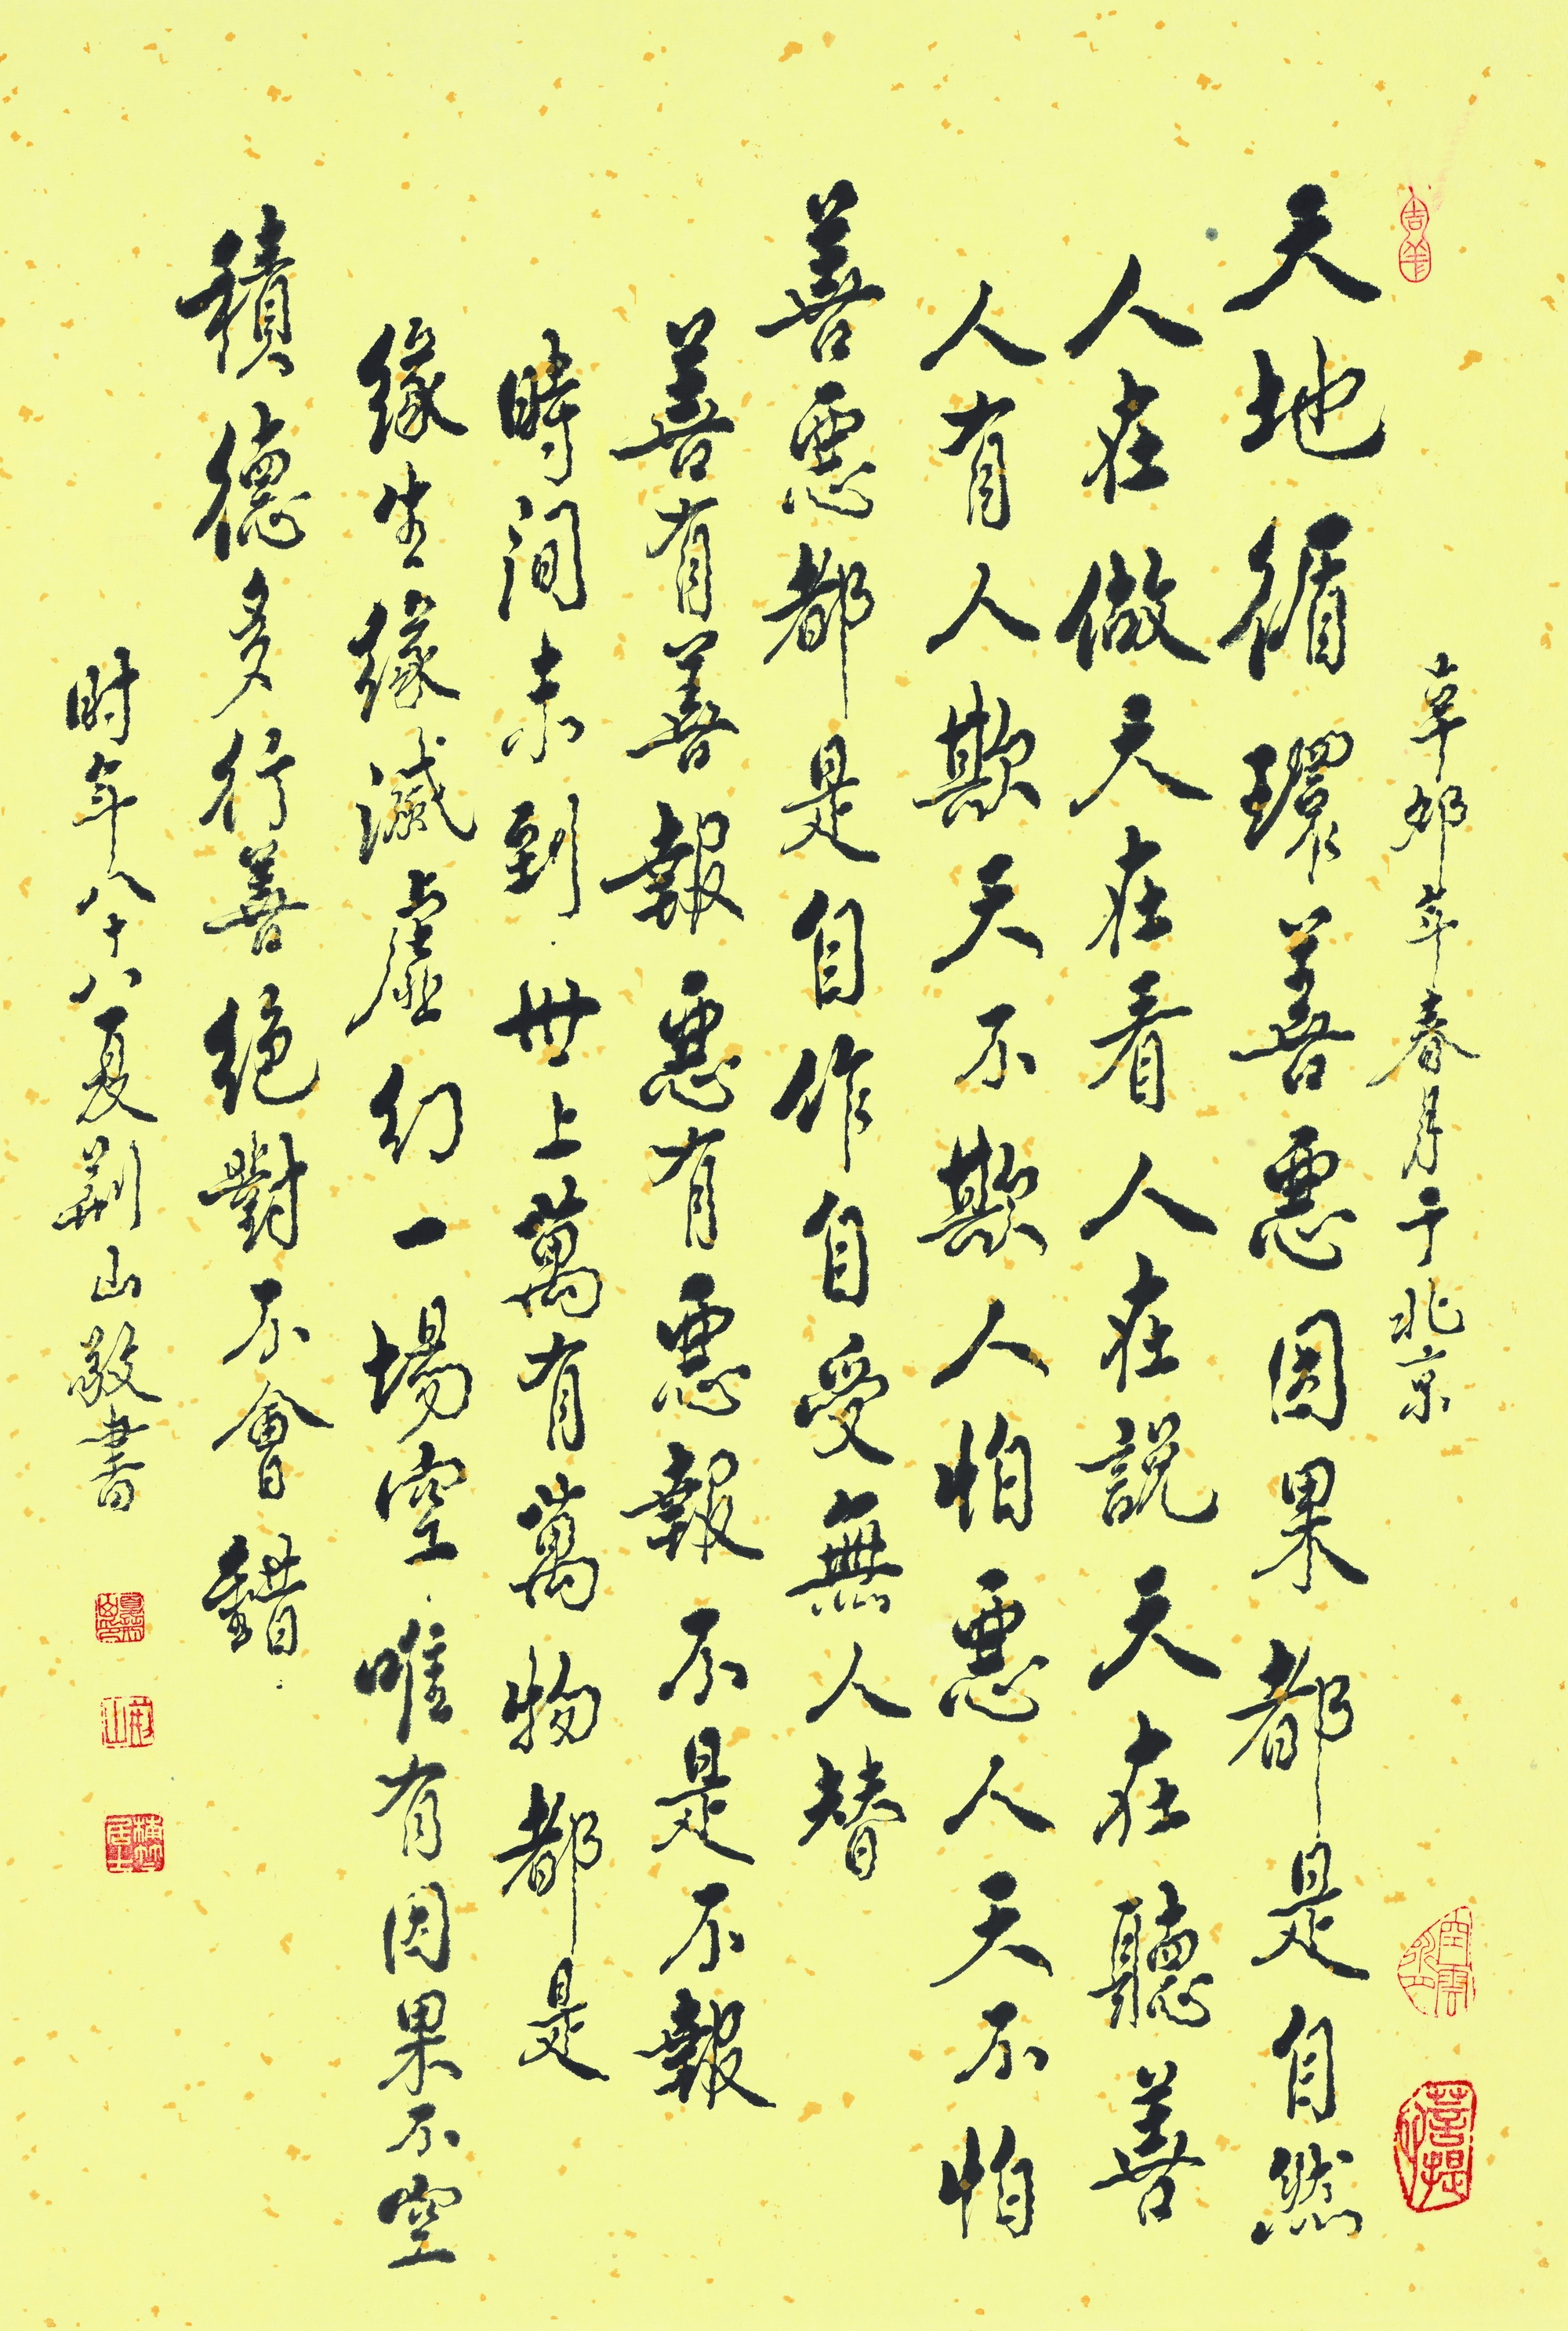 辛卯年春月于北京
天地循環善惡因果都是自然
人在做天在看人在說天在聽善
人有人欺天不欺人怕惡人天不怕
善惡都是自作自受無人替
善有善報惡有惡報不是不報
時间未到世上萬有萬物都是
緣生緣滅虛幻一場空唯有因果不空
積德多行善絕對不會錯
时年八十八夏荆山敬書
吉羊
菩提